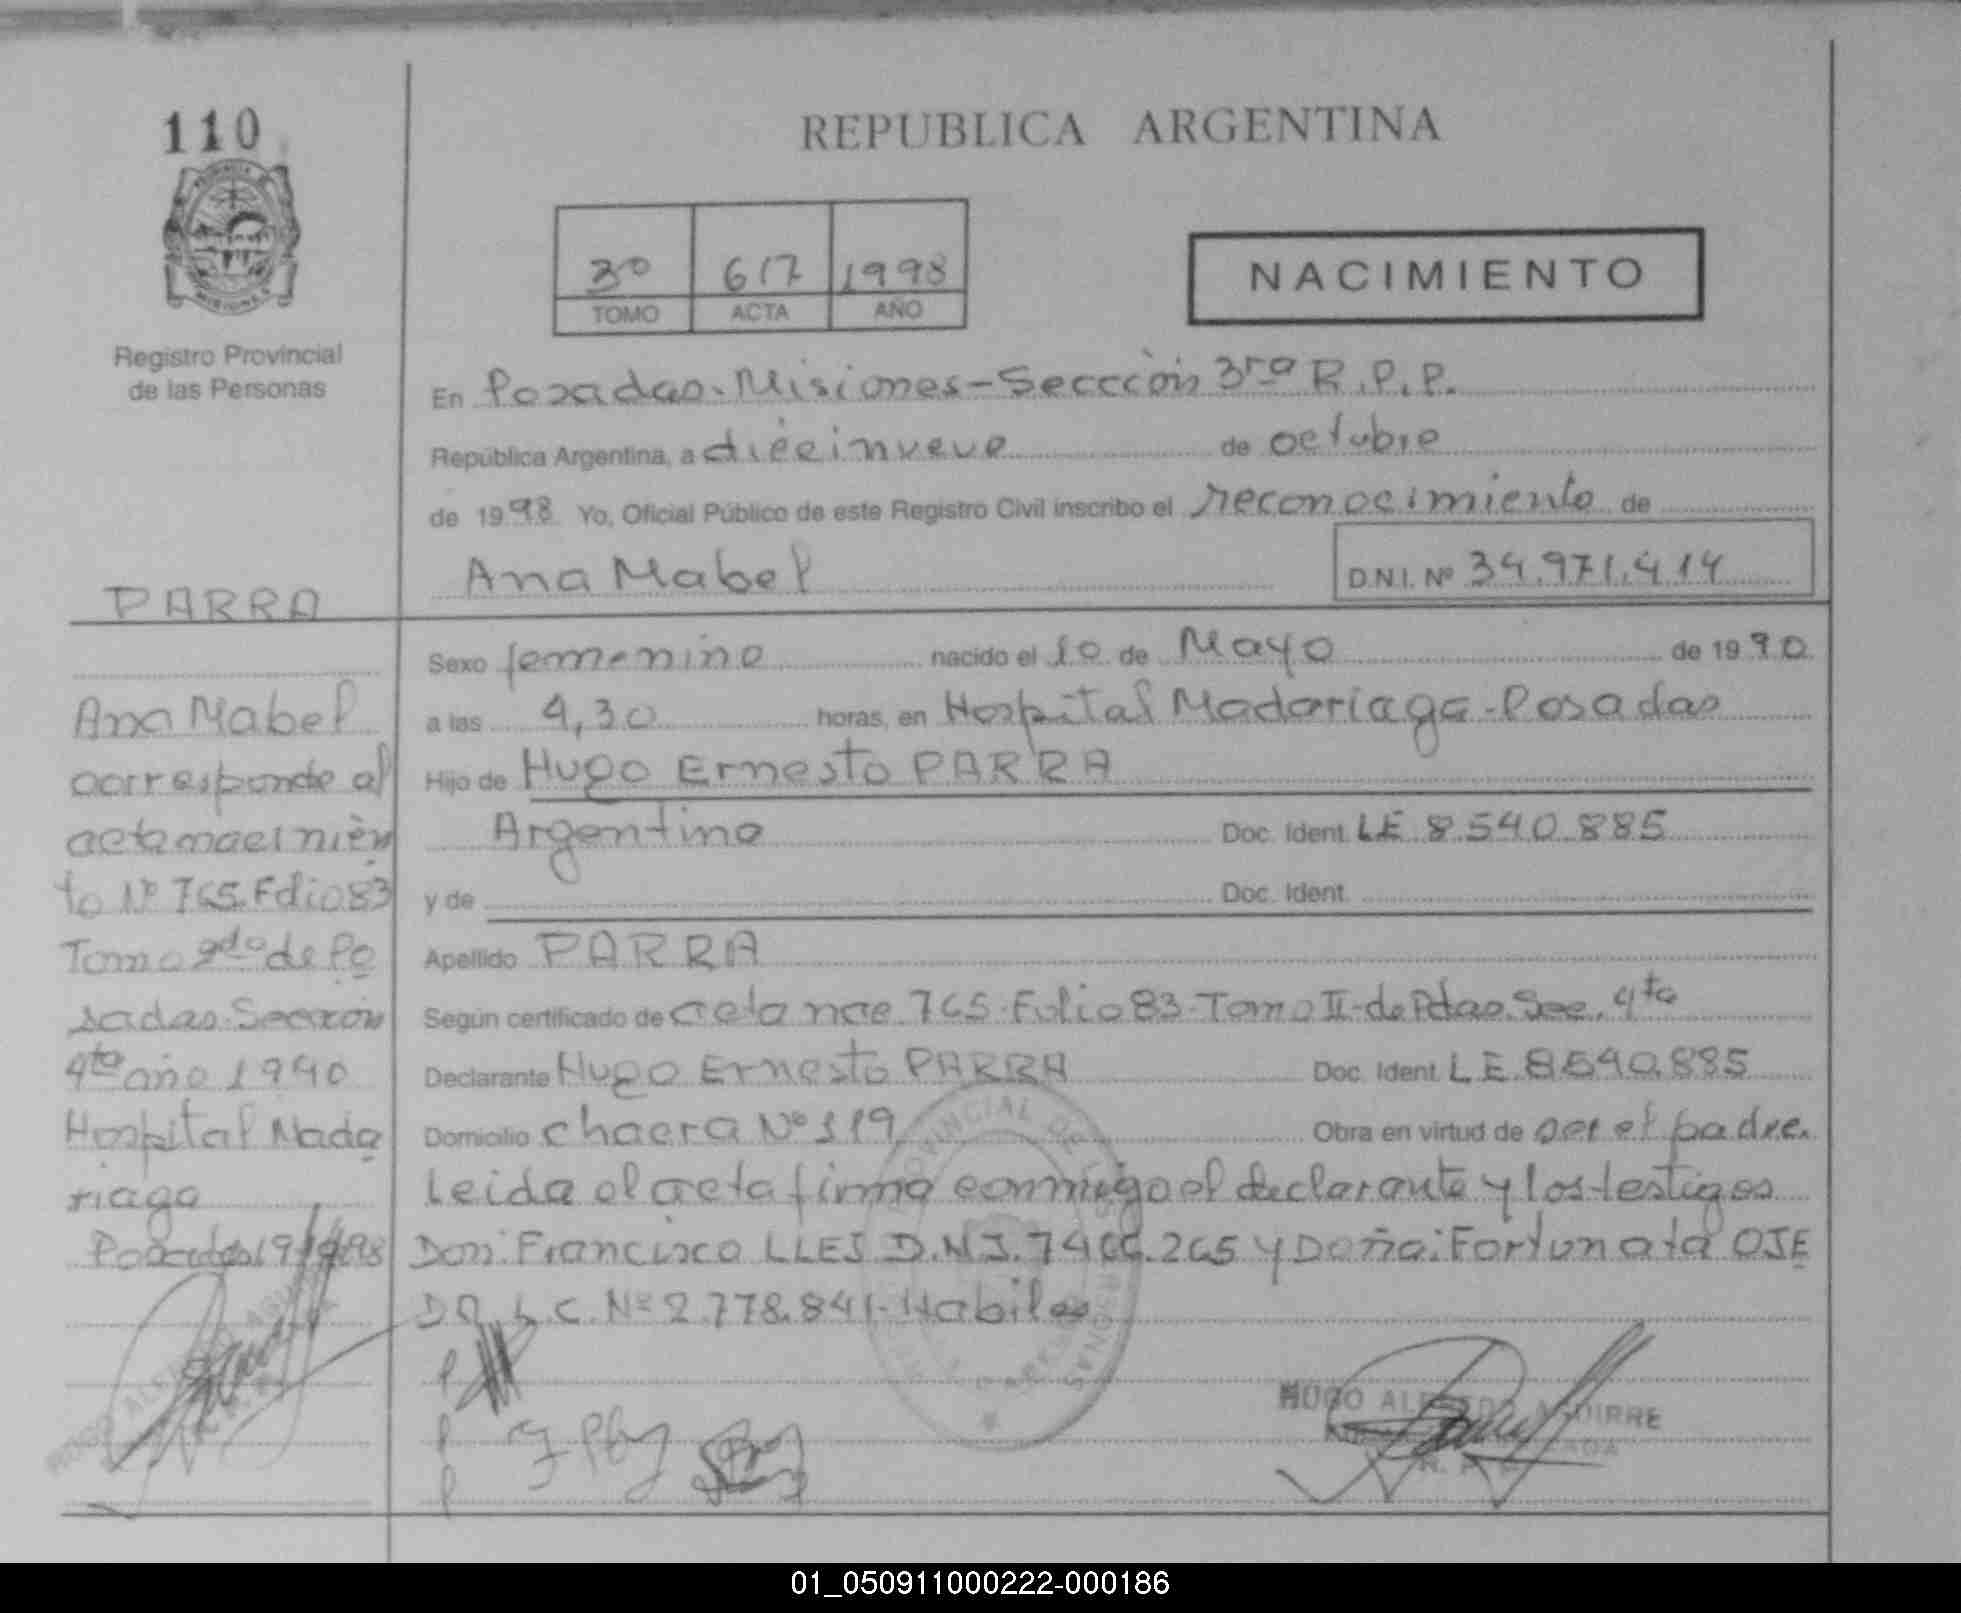 110
REPUBLICA ARGENTINA
3º 617 1998
TOMO ACTA AÑO
NACIMIENTO
Registro Provincial
de las Personas
En Posadas. Misiones - Seccción 3ra R.P.P.
República Argentina, a diecinueve de octubre
de 1998 Yo, Oficial Público de este Registro Civil inscribo el reconocimiento de
Ana Mabel D.N.I. Nº 34.971.414
Sexo femenino nacido el 10 de Mayo de 1990
a las 4,30 horas, en Hospital Madariaga - Posadas
Hijo de Hugo Ernesto PARRA
Argentino Doc. Ident. LE 8.540.885
y de Doc. Ident.
Apellido PARRA
Según certificado de acta nac 765 - Folio 83 - Tomo II - de Pdas. Sec. 4ta
Declarante Hugo Ernesto PARRA Doc. Ident. LE 8.540.885
Domicilio chacra Nº 119 Obra en virtud de ser el padre.
Leida el acta firma conmigo el declarante y los testigos
Don: Francisco LLES D.N.I. 7.466.265 y Doña: Fortunata OJE
DA L.C. Nº 2.778.841 - Habiles
PARRA
Ana Mabel
corresponde al
acta nacimien
to Nº 765 Folio 83
Tomo 2do de Po
sadas Sección
4ta año 1990
Hospital Mada
riaga
Posadas 19
PROVINCIAL DE
PERSONAS
HUGO ALFREDO AGUIRRE
01_050911000222-000186